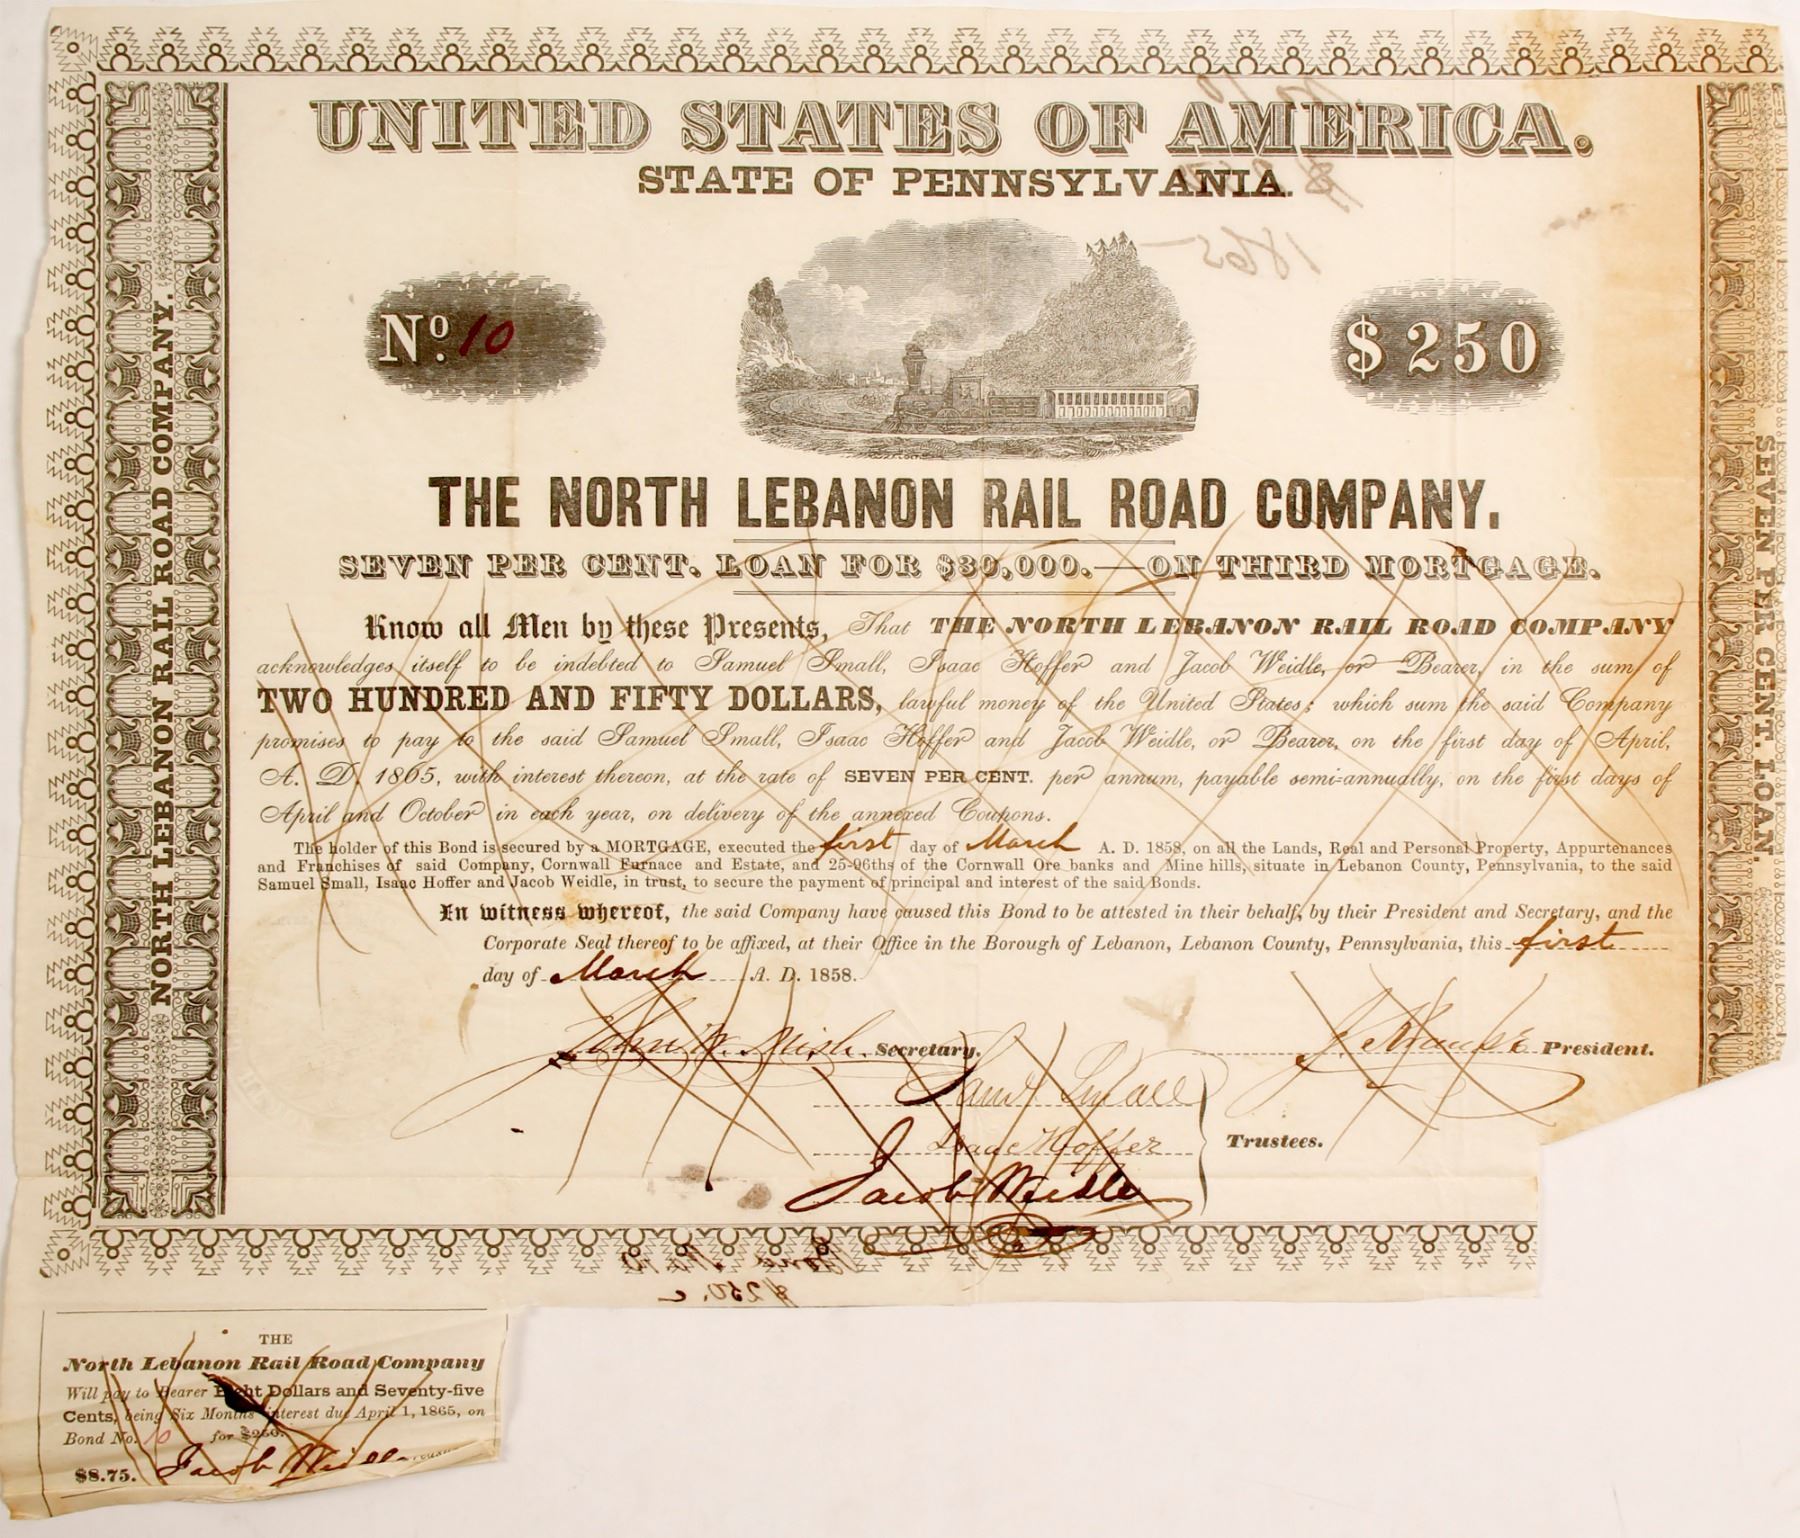 UNITED STATES OF AMERICA.
STATE OF PENNSYLVANIA.
No. 10
$250
THE NORTH LEBANON RAIL ROAD COMPANY.
SEVEN PER CENT. LOAN FOR $30,000.—ON THIRD MORTGAGE.
Know all Men by these Presents, That THE NORTH LEBANON RAIL ROAD COMPANY
acknowledges itself to be indebted to Samuel Small, Isaac Hoffer and Jacob Weidle, or Bearer, in the sum of
TWO HUNDRED AND FIFTY DOLLARS, lawful money of the United States; which sum the said Company
promises to pay to the said Samuel Small, Isaac Hoffer and Jacob Weidle, or Bearer, on the first day of April,
A. D. 1865, with interest thereon, at the rate of SEVEN PER CENT. per annum, payable semi-annually, on the first days of
April and October in each year, on delivery of the annexed Coupons.
The holder of this Bond is secured by a MORTGAGE, executed the first day of March A. D. 1858, on all the Lands, Real and Personal Property, Appurtenances
and Franchises of said Company, Cornwall Furnace and Estate, and 25-96ths of the Cornwall Ore banks and Mine hills, situate in Lebanon County, Pennsylvania, to the said
Samuel Small, Isaac Hoffer and Jacob Weidle, in trust, to secure the payment of principal and interest of the said Bonds.
In witness whereof, the said Company have caused this Bond to be attested in their behalf, by their President and Secretary, and the
Corporate Seal thereof to be affixed, at their Office in the Borough of Lebanon, Lebanon County, Pennsylvania, this first
day of March A. D. 1858.
John W. Mish Secretary.
President.
Saml Small
Isaac Hoffer
Trustees.
Jacob Weidle
NORTH LEBANON RAIL ROAD COMPANY.
SEVEN PER CENT. LOAN.
No 10
$250
1865
$250.
THE
North Lebanon Rail Road Company
Will pay to Bearer Eight Dollars and Seventy-five
Cents, being Six Months interest due April 1, 1865, on
Bond No. 10 for $250.
$8.75. Jacob Weidle